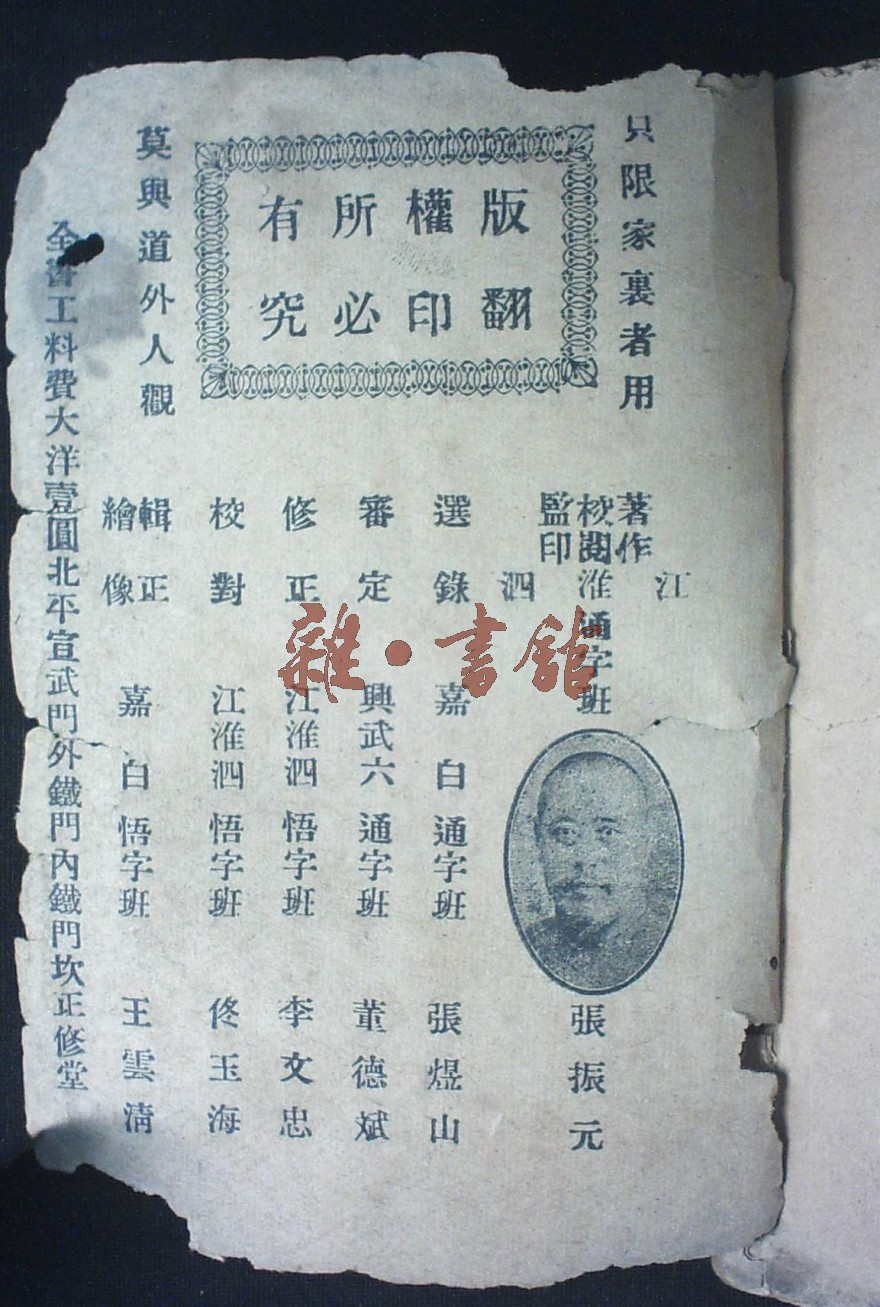 只限家裏者用
版權所有
翻印必究
莫與道外人觀
著作
校閱
監印
江淮泗
通字班
張振元
選錄 嘉白 通字班 張煜山
審定 興武六 通字班 董德斌
修正 江淮泗 悟字班 李文忠
校對 江淮泗 悟字班 佟玉海
輯正
繪像
嘉白 悟字班 王雲清
全書工料費大洋壹圓北平宣武門外鐵門內鐵門坎正修堂
雜·書館